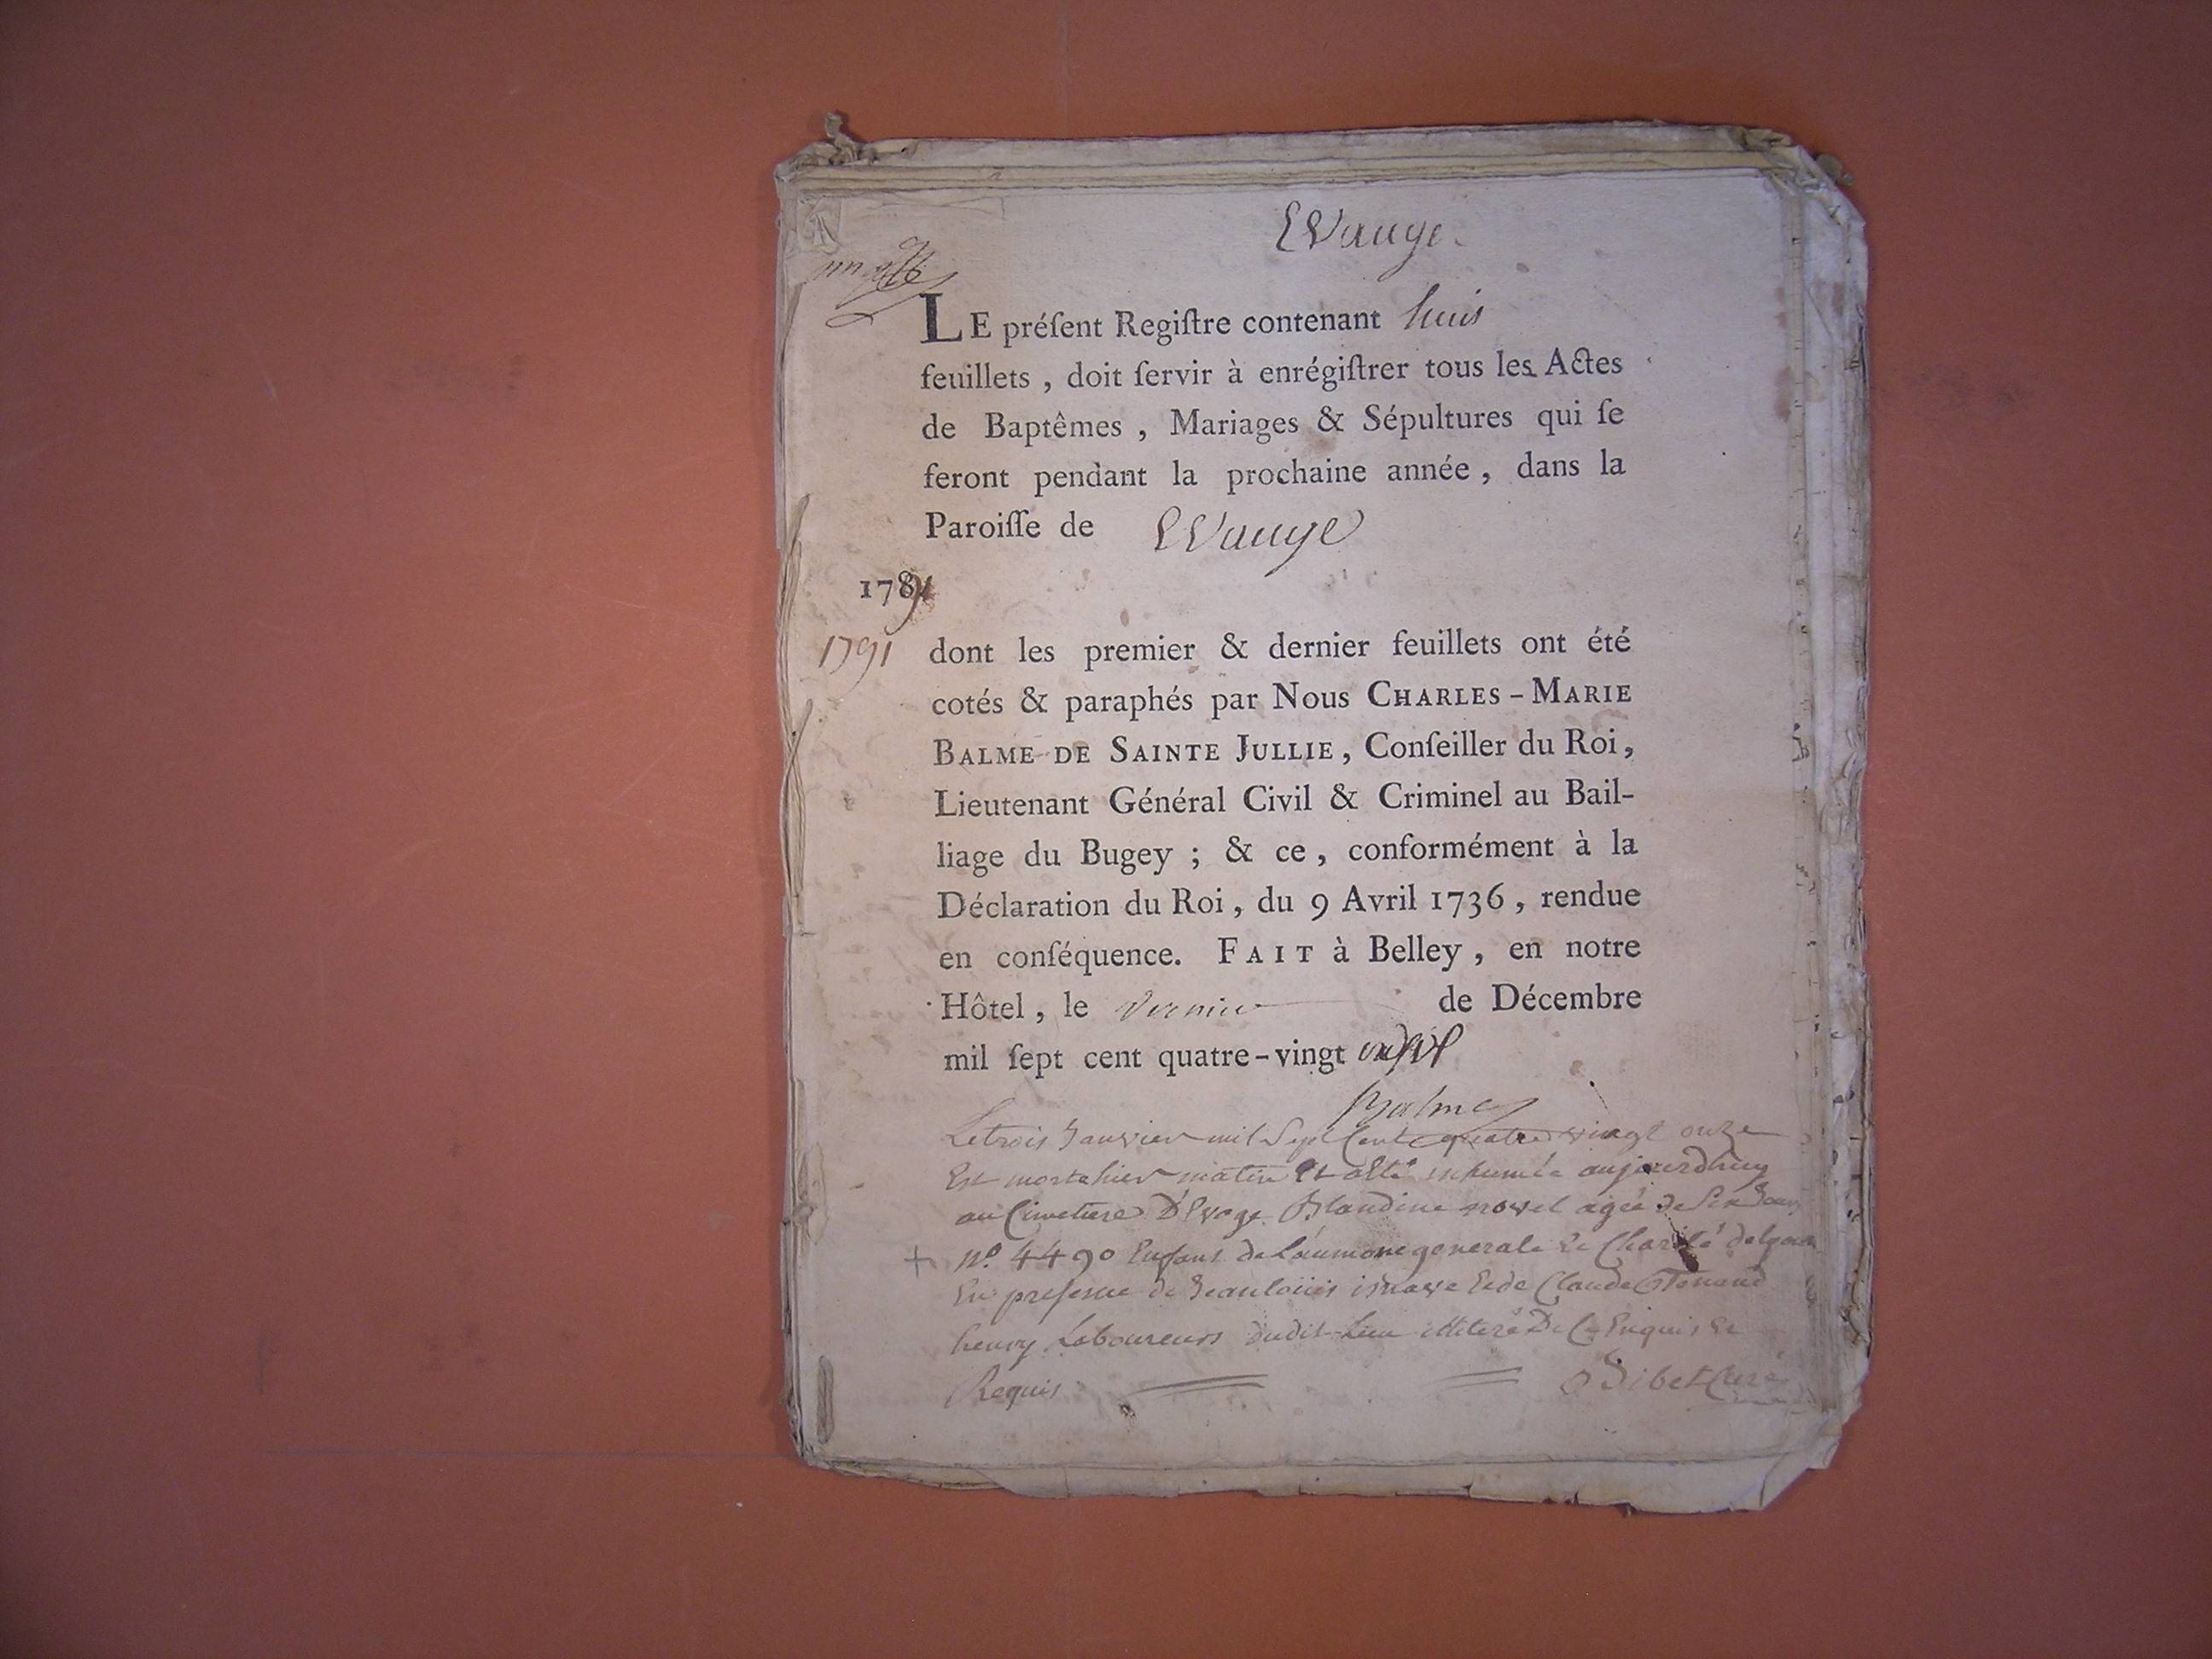 EVauge.
LE préſent Regiſtre contenant huit
feuillets, doit ſervir à enrégiſtrer tous les Actes
de Baptêmes, Mariages & Sépultures qui ſe
feront pendant la prochaine année, dans la
Paroiſſe de EVauge
1791
1791 dont les premier & dernier feuillets ont été
cotés & paraphés par Nous CHARLES-MARIE
BALME DE SAINTE JULLIE, Conſeiller du Roi,
Lieutenant Général Civil & Criminel au Bail-
liage du Bugey; & ce, conformément à la
Déclaration du Roi, du 9 Avril 1736, rendue
en conſéquence. FAIT à Belley, en notre
Hôtel, le dernier de Décembre
mil ſept cent quatre-vingt
Balme
Le trois Janvier mil Sept Cent quatre vingt onze
Est morte hier matin Et a Eté inhumée aujourdhuy
au Cimetiere D'Evoge Blandine agée de Six
+ n.º 4490 Enfant de L'aumone generale Et Charité de Lyon
En presence de Jean louis Et de Claude
henry Laboureurs dudit Lieu illiteré De Ce Enquis Et
Requis Sibet Curé